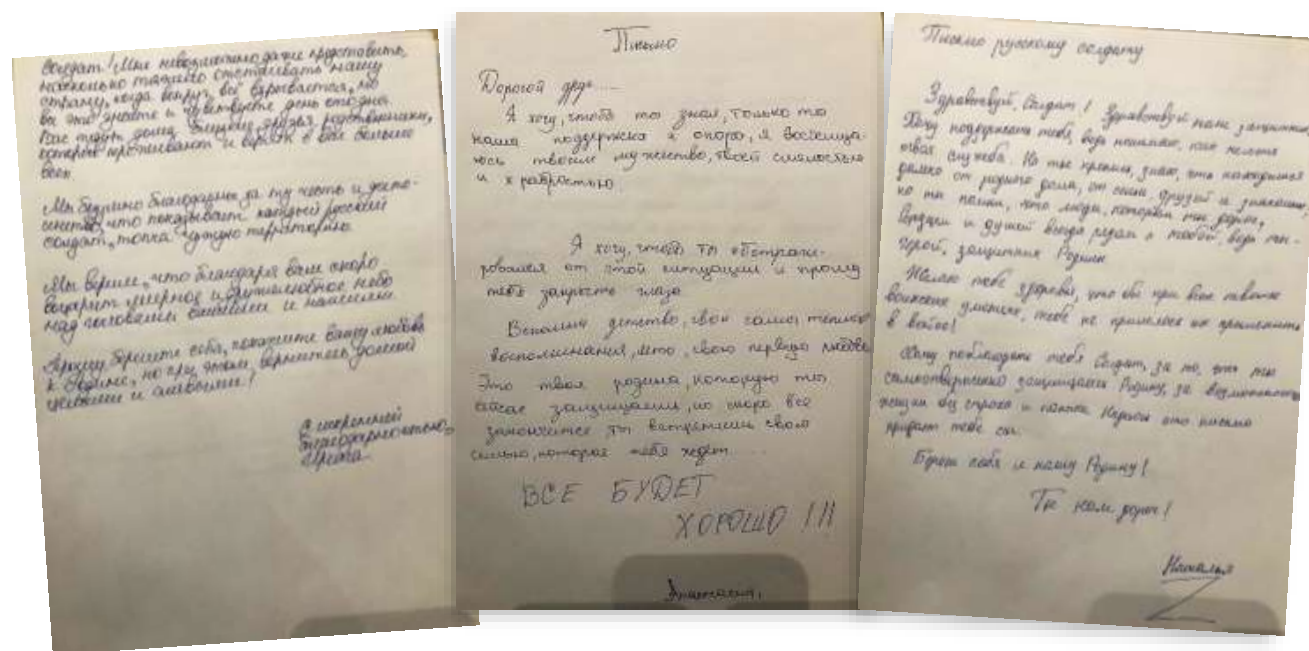 Солдат! Мне невозможно даже представить,
насколько тяжело отстаивать нашу
страну, когда вокруг всё взрывается, но
вы это знаете и чувствуете день ото дня.
Вас ждут дома близкие, друзья, родственники,
которые переживают и верят в вас больше
всех
Мы безумно благодарны за ту честь и досто-
инство, что показывает каждый русский
солдат, топча чужую территорию
Мы верим, что благодаря вам скоро
воцарит мирное и дружелюбное небо
над головами вашими и нашими
Прошу, берегите себя, покажите вашу любовь
к Родине, но при этом, вернитесь домой
целыми и живыми!
с искренней
благодарностью,
Письмо
Дорогой друг.....
Я хочу, чтоб ты знал, только ты
наша поддержка и опора, я восхища-
юсь твоим мужеством, твоей смелостью
и храбростью
Я хочу, чтоб ты абстраги-
ровался от этой ситуации и прошу
тебя закрыть глаза
Вспомни детство, свои самые теплые
воспоминания, лето, свою первую любовь
Это твоя родина, которую ты
сейчас защищаешь, но скоро все
закончится ты встретишь свою
семью, которая тебя ждет.....
ВСЕ БУДЕТ
ХОРОШО !!!
Анастасия.
Письмо русскому солдату
Здравствуй, Солдат! Здравствуй наш защитник
Хочу поддержать тебя, ведь понимаю, как нелегка
твоя служба. Но ты крепись, знаю, что находишься
далеко от родного дома, от семьи, друзей и знакомых,
но ты помни, что люди, которым ты дорог,
сердцем и душой всегда рядом с тобой, ведь ты -
герой, защитник Родины
Желаю тебе здоровья, что бы при всех твоих
воинских умениях, тебе не пришлось их применить
в войне!
Хочу поблагодарить тебя Солдат, за то, что ты
самоотверженно защищаешь Родину, за возможность
жить без страха и паники Надеюсь это письмо
придаст тебе сил.
Береги себя и нашу Родину!
Ты нам дорог!
Наталья
Z